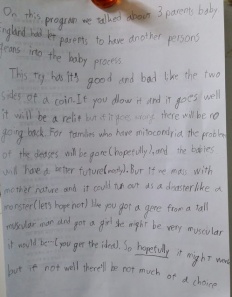 On this program we talked about 3 parents baby
England had let parents to have another persons
jeans into the baby process
This try has its good and bad like the two
sides of a coin. If you allow it and it goes well
it will be a relif but if there will be no
going back. For families who have mitocondria the problem
of the deases will be gone (hopefully), and the babies
will have a better future. But if we mess with
mother nature and it could turn out as a disaster like a
monster (lets hope not) like you got a gene from a tall
muscular man and got a girl she might be very muscular
it would be— (you get the idea). So hopefully it might work
but if not well there'll be not much of a choice